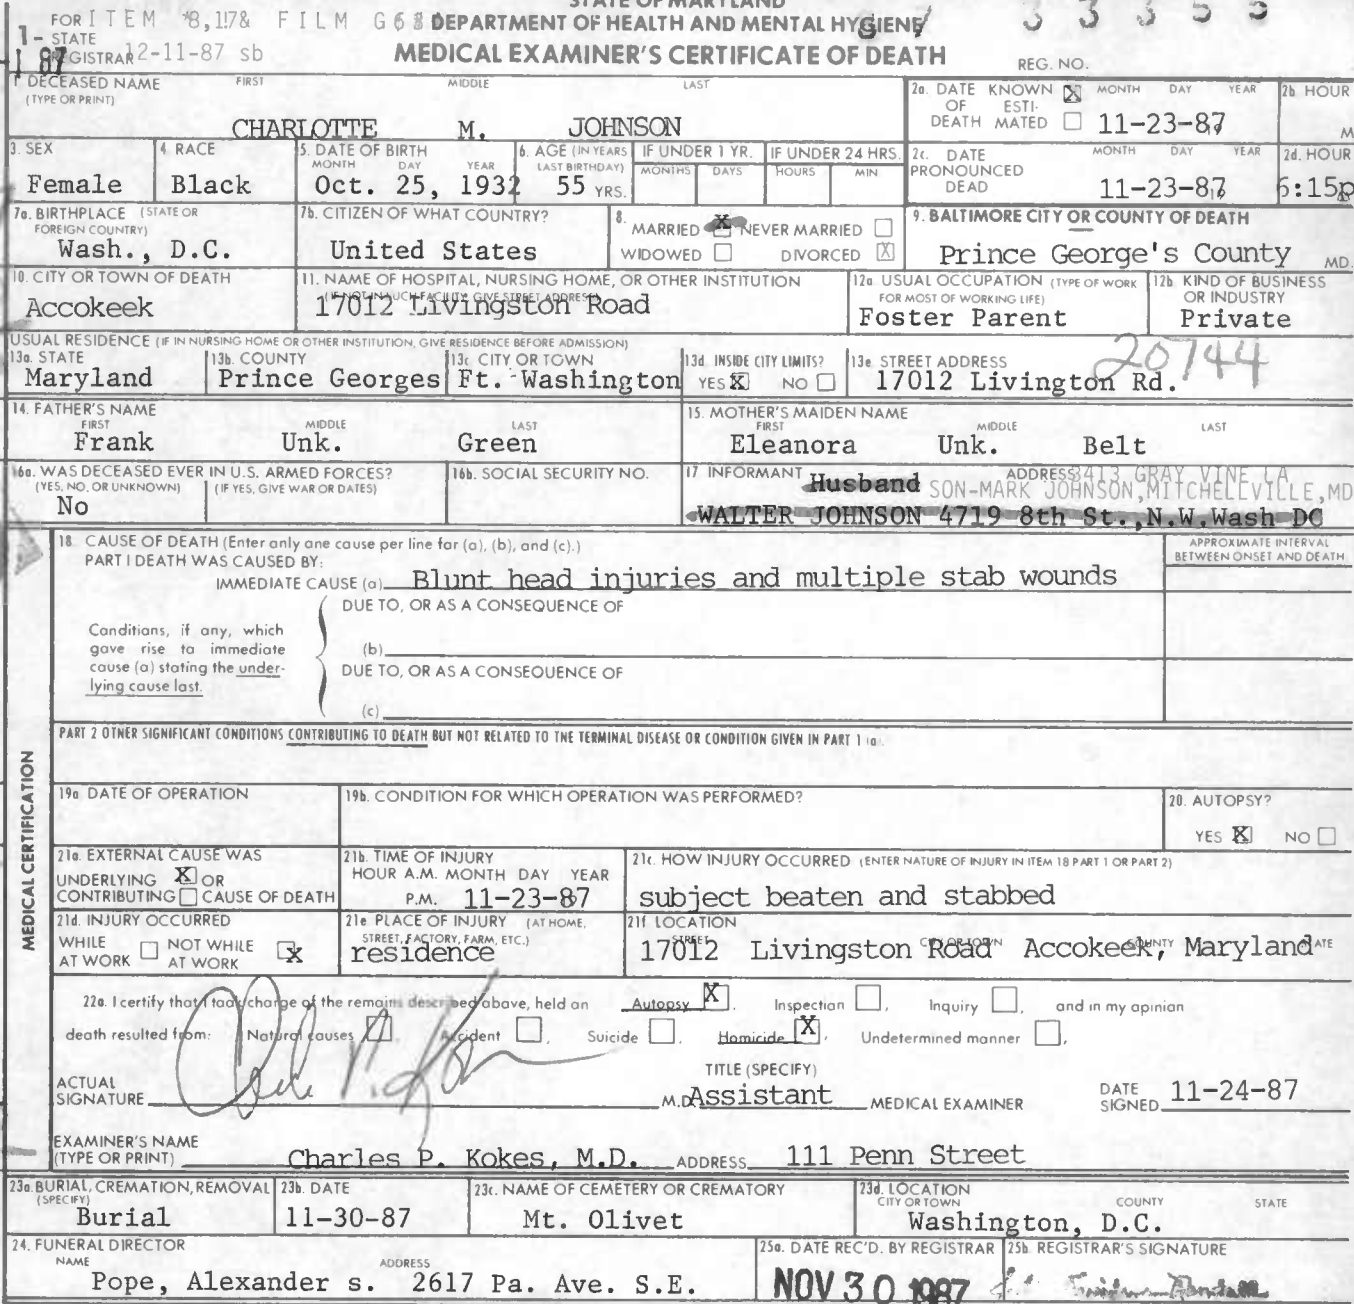 STATE OF MARYLAND
FOR ITEM *8,17& FILM G68 DEPARTMENT OF HEALTH AND MENTAL HYGIENE
1- STATE
REGISTRAR 12-11-87 sb MEDICAL EXAMINER'S CERTIFICATE OF DEATH REG. NO.
1 DECEASED NAME (TYPE OR PRINT) FIRST MIDDLE LAST
CHARLOTTE M. JOHNSON
2a. DATE OF DEATH KNOWN X ESTIMATED MONTH DAY YEAR
11-23-87
2b HOUR
M
3. SEX
Female
4. RACE
Black
5. DATE OF BIRTH MONTH DAY YEAR
Oct. 25, 1932
6. AGE (IN YEARS LAST BIRTHDAY)
55 YRS.
IF UNDER 1 YR. MONTHS DAYS
IF UNDER 24 HRS. HOURS MIN
2c. DATE PRONOUNCED DEAD MONTH DAY YEAR
11-23-87
2d. HOUR
6:15p
7a. BIRTHPLACE (STATE OR FOREIGN COUNTRY)
Wash., D.C.
7b. CITIZEN OF WHAT COUNTRY?
United States
8. MARRIED X NEVER MARRIED
WIDOWED DIVORCED X
9. BALTIMORE CITY OR COUNTY OF DEATH
Prince George's County MD.
10. CITY OR TOWN OF DEATH
Accokeek
11. NAME OF HOSPITAL, NURSING HOME, OR OTHER INSTITUTION
(IF NOT IN SUCH FACILITY, GIVE STREET ADDRESS)
17012 Livingston Road
12a USUAL OCCUPATION (TYPE OF WORK FOR MOST OF WORKING LIFE)
Foster Parent
12b KIND OF BUSINESS OR INDUSTRY
Private
USUAL RESIDENCE (IF IN NURSING HOME OR OTHER INSTITUTION, GIVE RESIDENCE BEFORE ADMISSION)
13a. STATE
Maryland
13b. COUNTY
Prince Georges
13c CITY OR TOWN
Ft. Washington
13d. INSIDE CITY LIMITS?
YES X NO
13e STREET ADDRESS
17012 Livington Rd. 20744
14. FATHER'S NAME FIRST MIDDLE LAST
Frank Unk. Green
15. MOTHER'S MAIDEN NAME FIRST MIDDLE LAST
Eleanora Unk. Belt
16a. WAS DECEASED EVER IN U.S. ARMED FORCES?
(YES, NO, OR UNKNOWN) (IF YES, GIVE WAR OR DATES)
No
16b. SOCIAL SECURITY NO.
17 INFORMANT Husband ADDRESS 3413 GRAY VINE LA
SON-MARK JOHNSON, MITCHELLVILLE, MD
WALTER JOHNSON 4719 8th St.,N.W.Wash DC
MEDICAL CERTIFICATION
18. CAUSE OF DEATH (Enter only one cause per line for (a), (b), and (c).)
PART I DEATH WAS CAUSED BY:
IMMEDIATE CAUSE (a) Blunt head injuries and multiple stab wounds
APPROXIMATE INTERVAL BETWEEN ONSET AND DEATH
DUE TO, OR AS A CONSEQUENCE OF
Conditions, if any, which gave rise to immediate cause (a) stating the underlying cause last.
(b)
DUE TO, OR AS A CONSEQUENCE OF
(c)
PART 2 OTHER SIGNIFICANT CONDITIONS CONTRIBUTING TO DEATH BUT NOT RELATED TO THE TERMINAL DISEASE OR CONDITION GIVEN IN PART 1 (a).
19a DATE OF OPERATION
19b. CONDITION FOR WHICH OPERATION WAS PERFORMED?
20. AUTOPSY?
YES X NO
21a. EXTERNAL CAUSE WAS
UNDERLYING X OR
CONTRIBUTING CAUSE OF DEATH
21b. TIME OF INJURY
HOUR A.M. MONTH DAY YEAR
P.M. 11-23-87
21c. HOW INJURY OCCURRED (ENTER NATURE OF INJURY IN ITEM 18 PART 1 OR PART 2)
subject beaten and stabbed
21d. INJURY OCCURRED
WHILE AT WORK NOT WHILE AT WORK X
21e PLACE OF INJURY (AT HOME, STREET, FACTORY, FARM, ETC.)
residence
21f LOCATION STREET CITY OR TOWN COUNTY STATE
17012 Livingston Road Accokeek, Maryland
22a. I certify that I took charge of the remains described above, held an Autopsy X, Inspection, Inquiry and in my opinion
death resulted from: Natural causes, Accident, Suicide, Homicide X, Undetermined manner,
TITLE (SPECIFY)
ACTUAL SIGNATURE M.D. Assistant MEDICAL EXAMINER DATE SIGNED 11-24-87
EXAMINER'S NAME (TYPE OR PRINT) Charles P. Kokes, M.D. ADDRESS 111 Penn Street
23a. BURIAL, CREMATION, REMOVAL (SPECIFY)
Burial
23b. DATE
11-30-87
23c. NAME OF CEMETERY OR CREMATORY
Mt. Olivet
23d. LOCATION CITY OR TOWN COUNTY STATE
Washington, D.C.
24. FUNERAL DIRECTOR NAME ADDRESS
Pope, Alexander s. 2617 Pa. Ave. S.E.
25a. DATE REC'D. BY REGISTRAR
NOV 30 1987
25b. REGISTRAR'S SIGNATURE